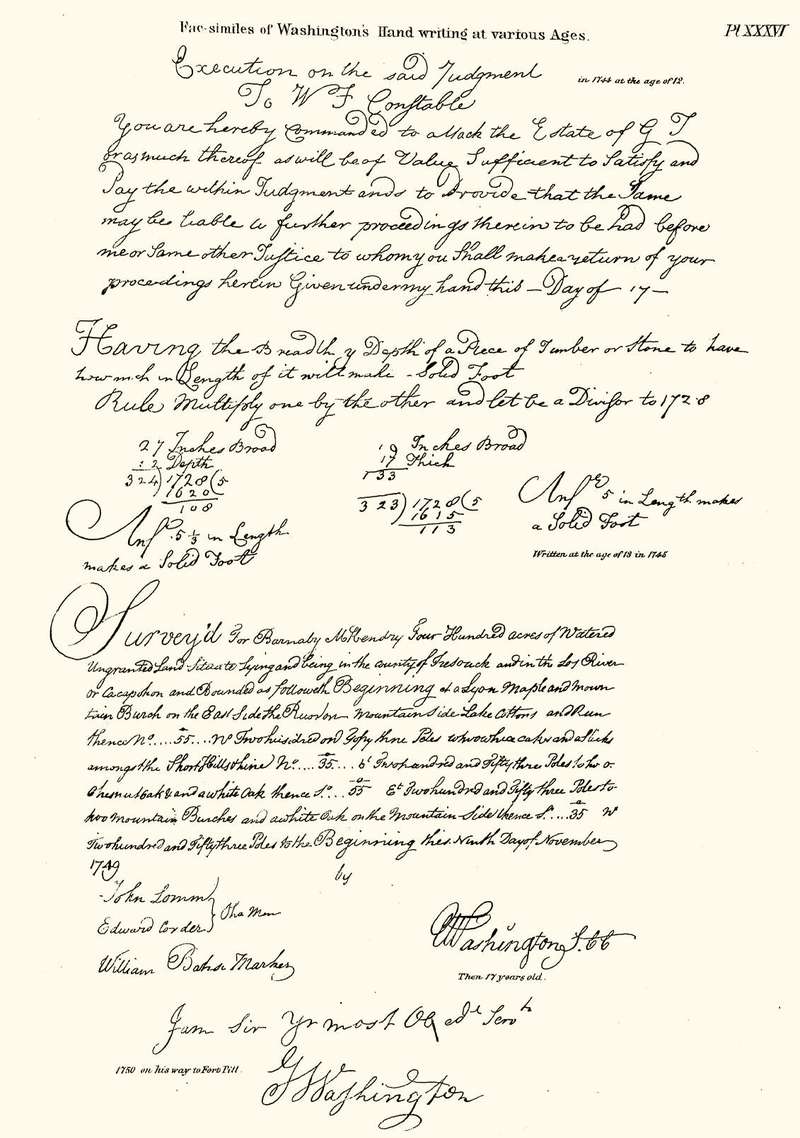 Fac-similes of Washington's Hand writing at various Ages.
Pl XXXVI
Execution on the said Judgment
in 1744 at the age of 12.
To W F Constable
You are hereby Commanded to attack the Estate of G T
or as much thereof as will be of Value Sufficient to Satisfy and
Pay the within Judgment and to Provide that the Same
may be liable to further proceedings therein to be had before
me or Same other Justice to whom you Shall make a return of your
proceedings herein Given under my hand this — Day of 17 —
Having the Breadth y Depth of a Piece of Timber or Stone to have
how mch in Length of it will make - Solid Foot
Rule Multiply one by the other and let be a Divisor to 1728
27 Inches Broad
12 Depth
324) 1728 (5
1620
108
Ansr. 5 1/3 in Length
makes a Solid Foot
19 Inches Broad
17 Thick
133
323) 1728 (5
1615
113
Ansr 5 in Length makes
a Solid Foot
Written at the age of 13 in 1745
Survey'd For Barnaby McKendry Four Hundred acres of Watered
Ungranted Land Situate Lying and being in the county of and in the Los River
or Cacapehon and Bounded as followeth Beginning at a Lyon Maple and Moun
tain Burch on the East Side the Mountain Side Lake Cottons and Run
thence No....55....Wt Two hundred and Fifty three Poles
amongst the Short Hills thine No....35...Et Two and Fifty three Poles to
Chesnut Oak & and a white Oak thence So....55 Et Two hundred and Fifty three Poles to
two mountain Burches and a white Oak on the Mountain Side thence So....35 W
Two hundred and Fifty three Poles to the Beginning this Ninth Day of November
1749
by
John Lomm
Edward Corder
Cha Men
William Baker Marker
Washington S.CC
Then 17 years old.
I am Sir Yr most Obedt Servt
1750 on his way to Fort Pitt.
GWashington